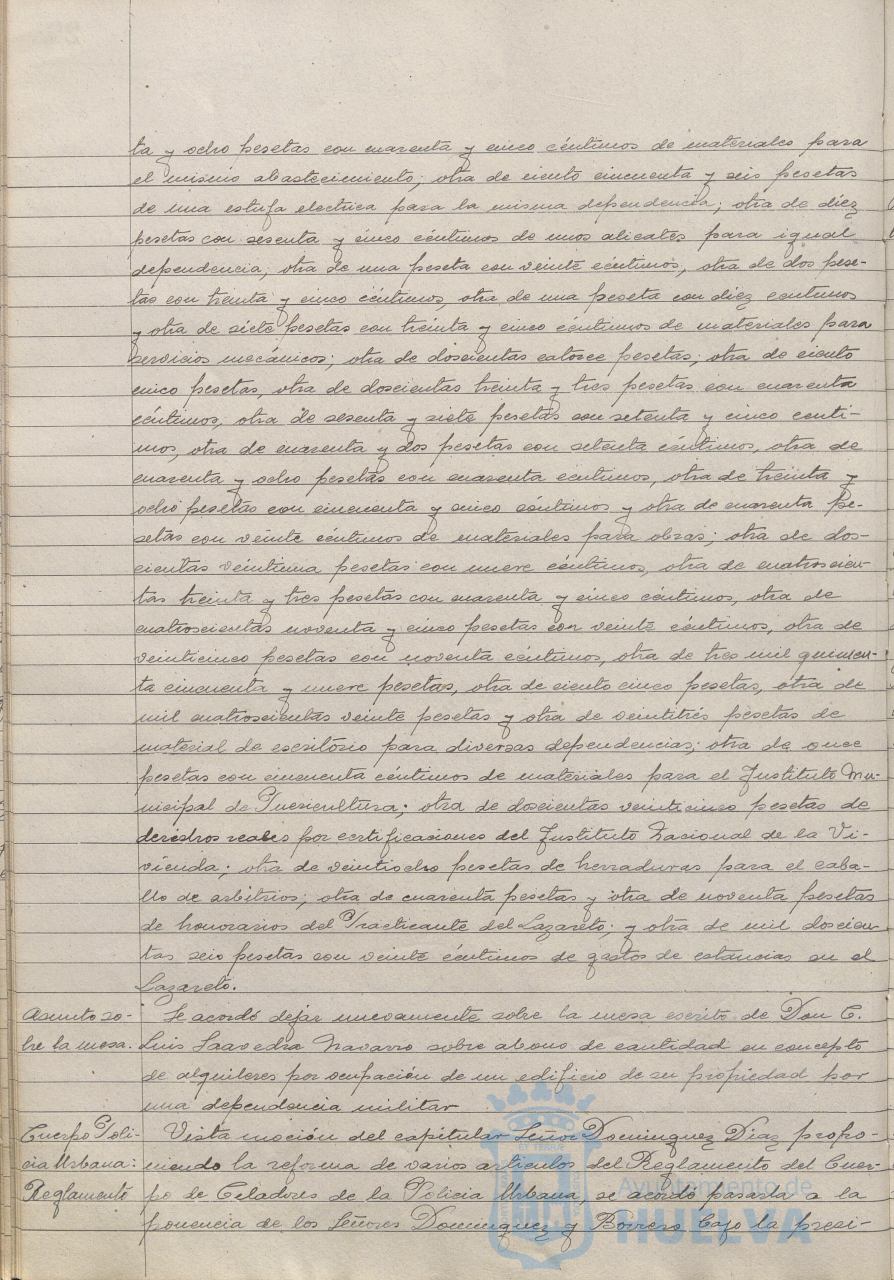 ta y ocho pesetas con cuarenta y cinco céntimos de materiales para
el mismo abastecimiento; otra de ciento cincuenta y seis pesetas
de una estufa electrica para la misma dependencia; otra de diez
pesetas con sesenta y cinco céntimos de unos alicates para igual
dependencia; otra de una peseta con veinte céntimos, otra de dos pese-
tas con treinta y cinco céntimos, otra de una peseta con diez centimos
y otra de siete pesetas con treinta y cinco céntimos de materiales para
servicios mecánicos; otra de doscientas catorce pesetas; otra de ciento
cinco pesetas, otra de doscientas treinta y tres pesetas con cuarenta
céntimos, otra de sesenta y siete pesetas con setenta y cinco centi-
mos, otra de cuarenta y dos pesetas con setenta céntimos, otra de
cuarenta y ocho pesetas con cuarenta centimos, otra de treinta y
ocho pesetas con cincuenta y cinco céntimos y otra de cuarenta pe-
setas con veinte céntimos de materiales para obras; otra de dos-
cientas veintiuna pesetas con nueve céntimos, otra de cuatrocien-
tas treinta y tres pesetas con cuarenta y cinco céntimos, otra de
cuatroscientas noventa y cinco pesetas con veinte céntimos, otra de
veinticinco pesetas con noventa céntimos, otra de tres mil quinien-
ta cincuenta y nueve pesetas, otra de ciento cinco pesetas, otra de
mil cuatroscientas veinte pesetas y otra de veintitrés pesetas de
material de escritório para diversas dependencias; otra de once
pesetas con cincuenta céntimos de materiales para el Instituto Mu-
nicipal de Puericultura; otra de doscientas veinticinco pesetas de
derechos reales por certificaciones del Instituto Nacional de la Vi-
vienda; otra de veintiocho pesetas de herraduras para el caba-
llo de arbitrios; otra de cuarenta pesetas y otra de noventa pesetas
de honorarios del Practicante del Lazareto; y otra de mil doscien-
tas seis pesetas con veinte céntimos de gastos de estancias en el
Lazareto.
Asunto so-
bre la mesa.
Se acordó dejar nuevamente sobre la mesa escrito de Don C.
Luis Saavedra Navarro sobre abono de cantidad en concepto
de alquileres por ocupación de un edificio de su propiedad por
una dependencia militar
Cuerpo Poli-
cia Urbana:
Reglamento
Vista moción del capitular Señor Dominguez Diaz propo-
niendo la reforma de varios articulos del Reglamento del Cuer-
po de Celadores de la Policia Urbana se acordó pasarla a la
ponencia de los Señores Dominguez y Borrero bajo la presi-
Ayuntamiento de
HUELVA